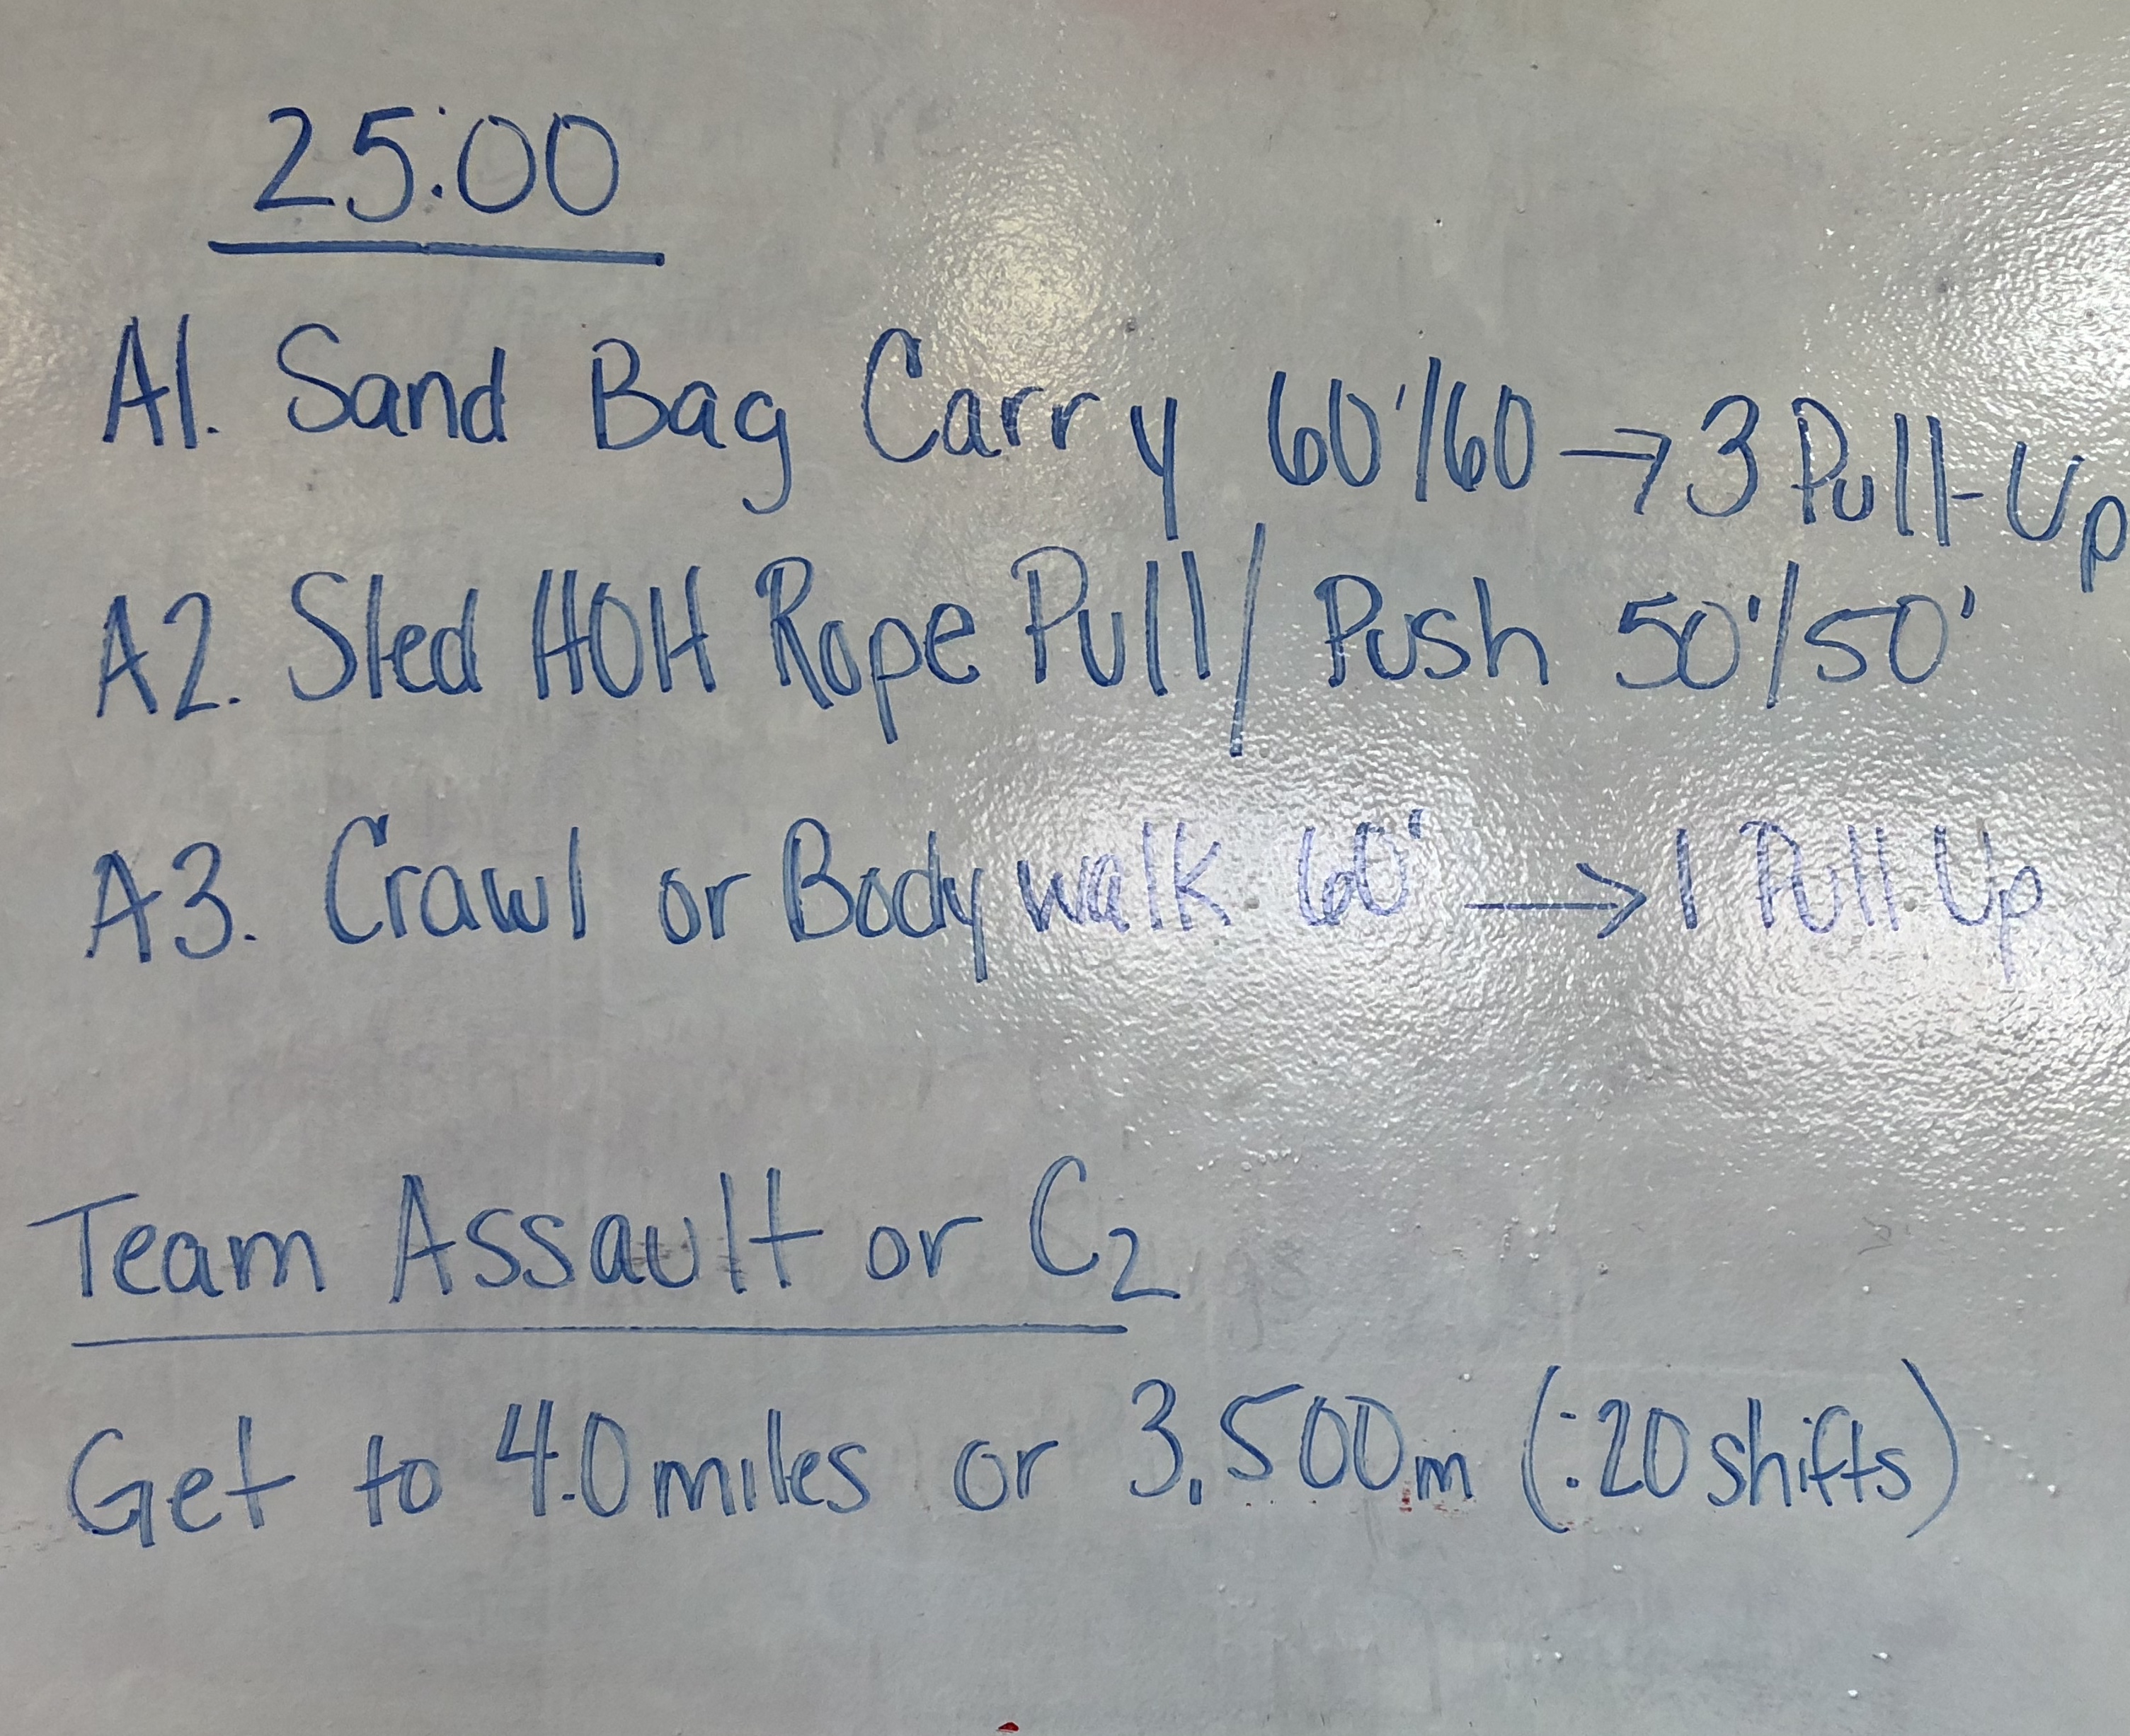 25:00
A1. Sand Bag Carry 60'/60 → 3 Pull-Up
A2. Sled HOH Rope Pull / Push 50'/50'
A3. Crawl or Body walk 60' → 1 Pull Up
Team Assault or C2
Get to 4.0 miles or 3,500m (:20 shifts)